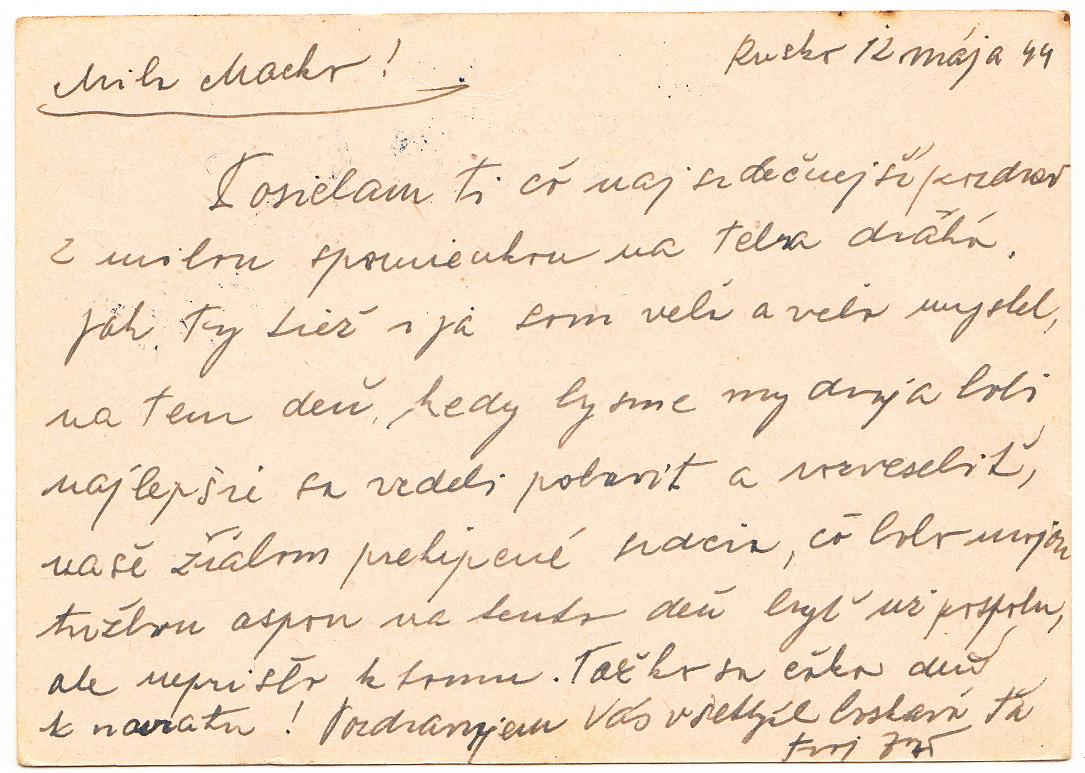 Rusko 12 mája 44
Milá Macko!
Posielam ti čo najsrdečnejší pozdrav
z milou spomienkou na Teba drahá.
Jak Ty tiež i já som veľa a veľa myslel,
na ten deň, kedy by sme my dvaja boli
najlepšie sa vedeli pobaviť a rozveseliť,
naše žiaľom prekipené srdcia, čo bolo mojou
tužbou aspon na tento deň byť už pospolu,
ale neprišlo k tomu. Tažko sa čáka deň
k navratu! Pozdravujem Vás všetkých bozkáva Ťa
tvoj